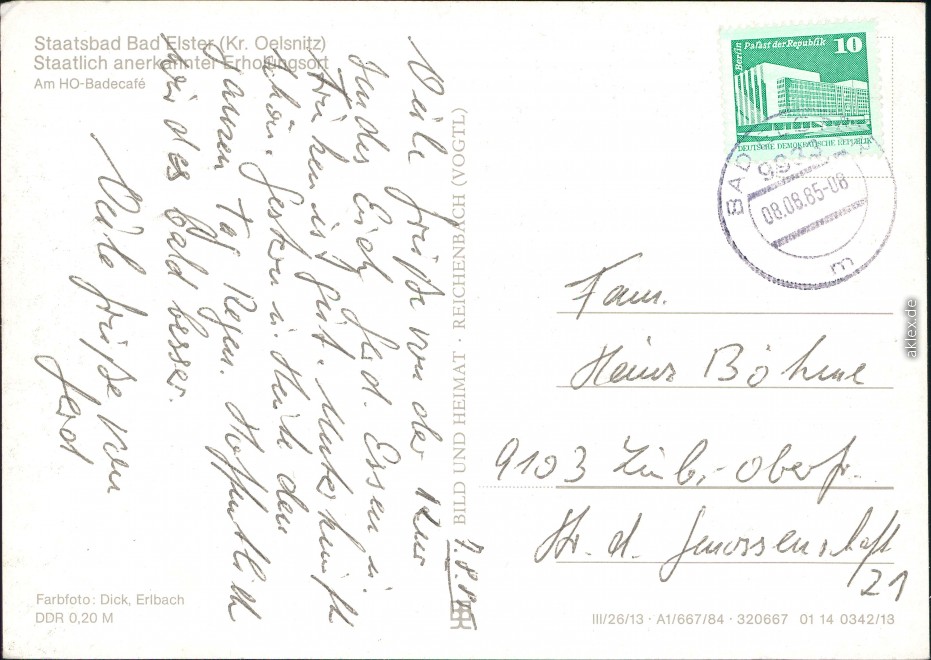 Staatsbad Bad Elster (Kr. Oelsnitz)
Staatlich anerkannter Erholungsort
Am HO-Badecafé
Viele Grüße von der Kur
sendet Euch Gerd. Essen u.
Trinken ist gut. Unterkunft
schön. Gestern u. Heute den
ganzen Tag Regen. Hoffentlich
wird es bald besser.
Viele Grüße von
Gerd
7.8.85
BILD UND HEIMAT · REICHENBACH (VOGTL)
Berlin Palast der Republik 10
DEUTSCHE DEMOKRATISCHE REPUBLIK
BAD
993
08.08.85-08
m
Fam.
Heinz Böhme
9103 Limb.-Oberfr.
Str. d. Genossenschaft
21
Farbfoto: Dick, Erlbach
DDR 0,20 M
III/26/13 · A1/667/84 · 320667 01 14 0342/13
aklex.de